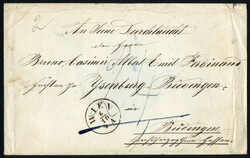 2
An Seine Durchlaucht
den Herrn
Bruno, Casimir Albert Emil Ferdinand
Fürsten zu Ysenburg-Büdingen
in
WIEN
Büdingen
Großherzogthum Hessen